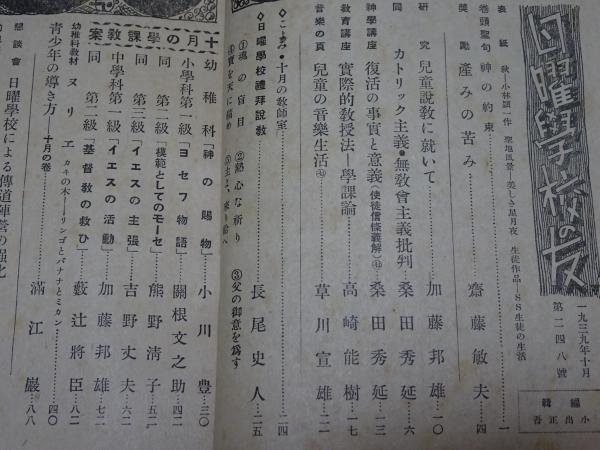 日曜學校の友
一九三九年十月
第二四八號
編輯
小出正吾
表紙 秋―小林頴一作 聖地風景―美しき星月夜 生徒作品・SS生徒の生活
卷頭聖句 神の約束………一
奬勵 產みの苦み………齋藤敏夫…四
研究 兒童說教に就いて………加藤邦雄…一〇
同 カトリック主義・無敎會主義批判………桑田秀延…六
神學講座 復活の事實と意義(使徒信條義解)㊷………桑田秀延…一三
敎育講座 實際的敎授法―學課論………高崎能樹…一七
音樂の頁 兒童の音樂生活㊷………草川宣雄…二二
◇こよみ・十月の敎師室………二四
◇日曜學校禮拜說敎………長尾史人…二五
①魂の盲目 ②熱心な祈り ③父の御意を爲す
④寶を天に積め ⑤主よ、來り給へ
十月の學課敎案
幼稚科「神の賜物」………小川豊…三〇
小學科第一級「ヨセフ物語」………關根文之助…四二
同 第二級「模範としてのモーセ」………熊野淸子…五二
同 第三級「イエスの主張」………吉野丈夫…六二
中學科第一級「イエスの活動」………加藤邦雄…七二
同 第二級「基督敎の救ひ」………藪辻將臣…八二
幼稚科敎材 ヌリエ カキの木―リンゴとバナナとミカン………四〇
靑少年の導き方 十月の卷………滿江巖…八八
懇談會 日曜學校による傳道陣營の强化